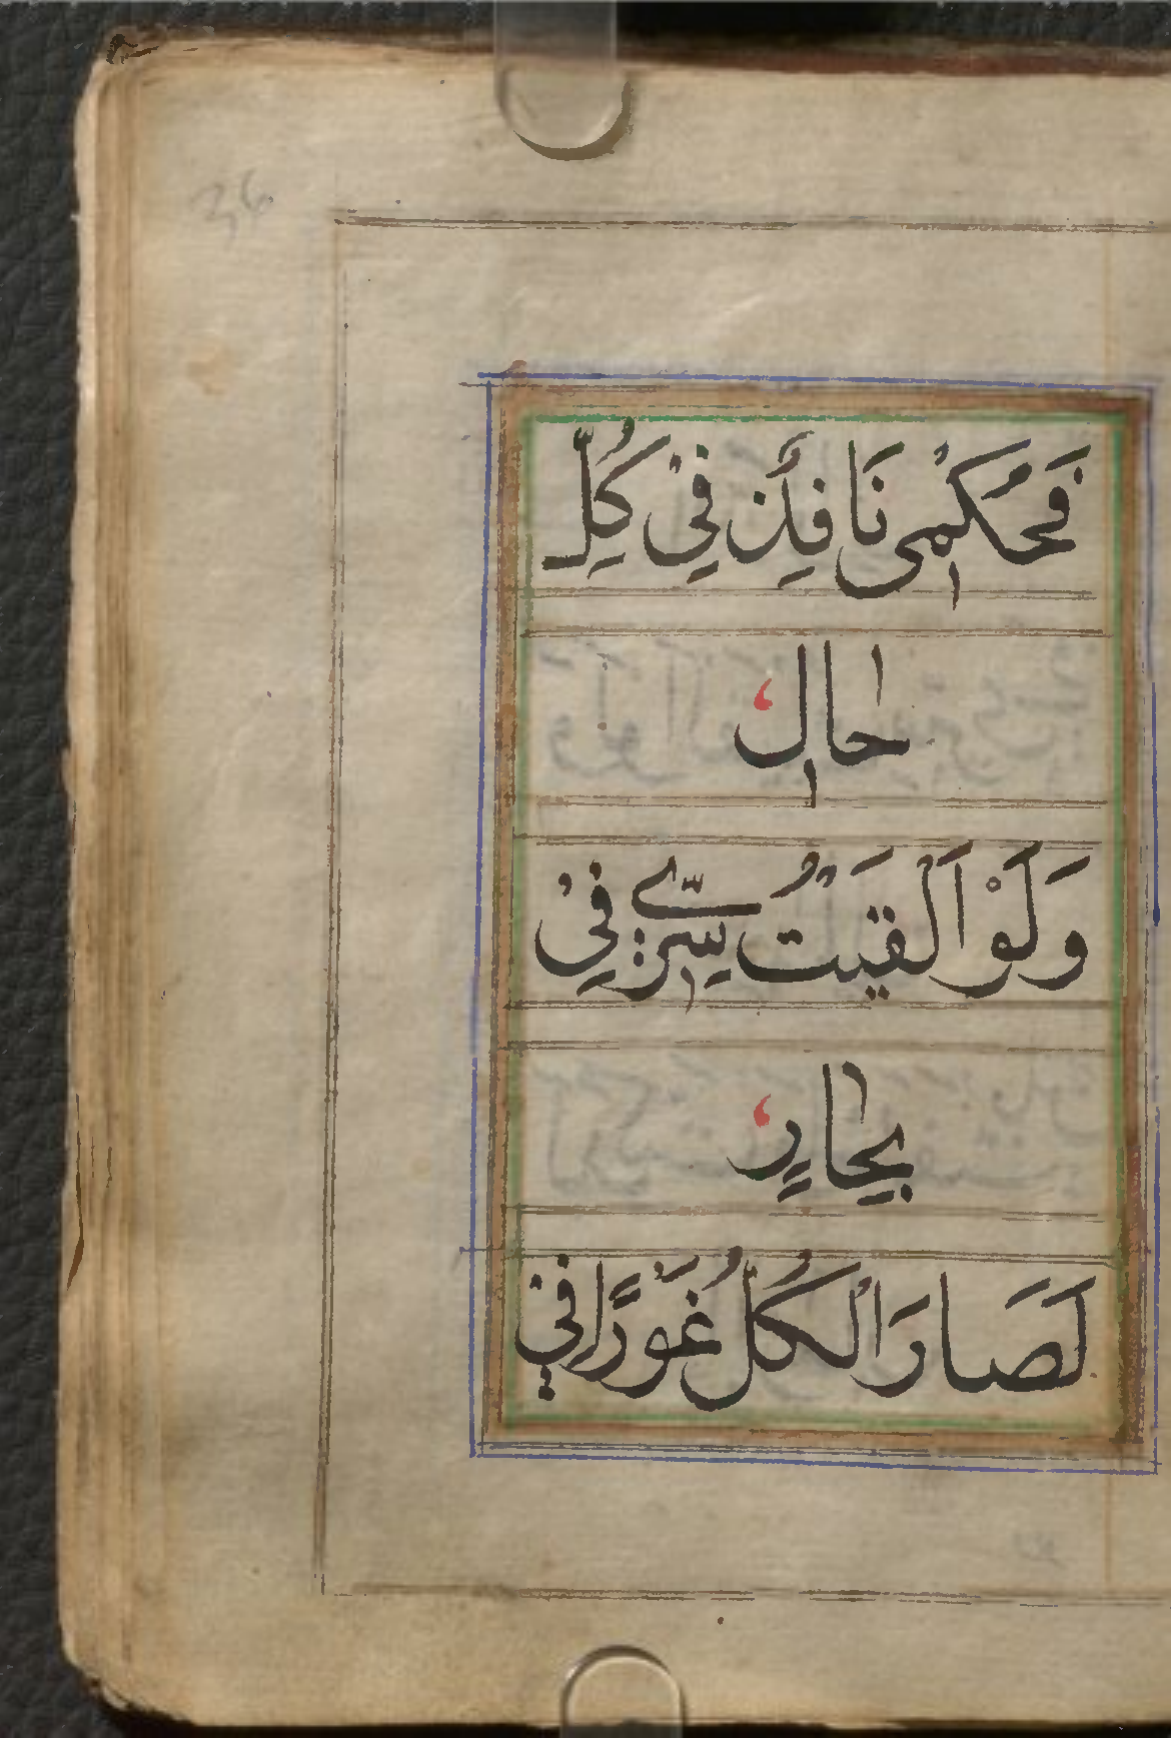 36
فَحُكْمِی نَافِذٌ فِیْ كُلِّ
حالٍ
وَلَوْ اَلْقَیْتُ سِرِّیْ فِیْ
بِحارٍ
لَصَارَ الْكُلُّ غَوْرًا فِی